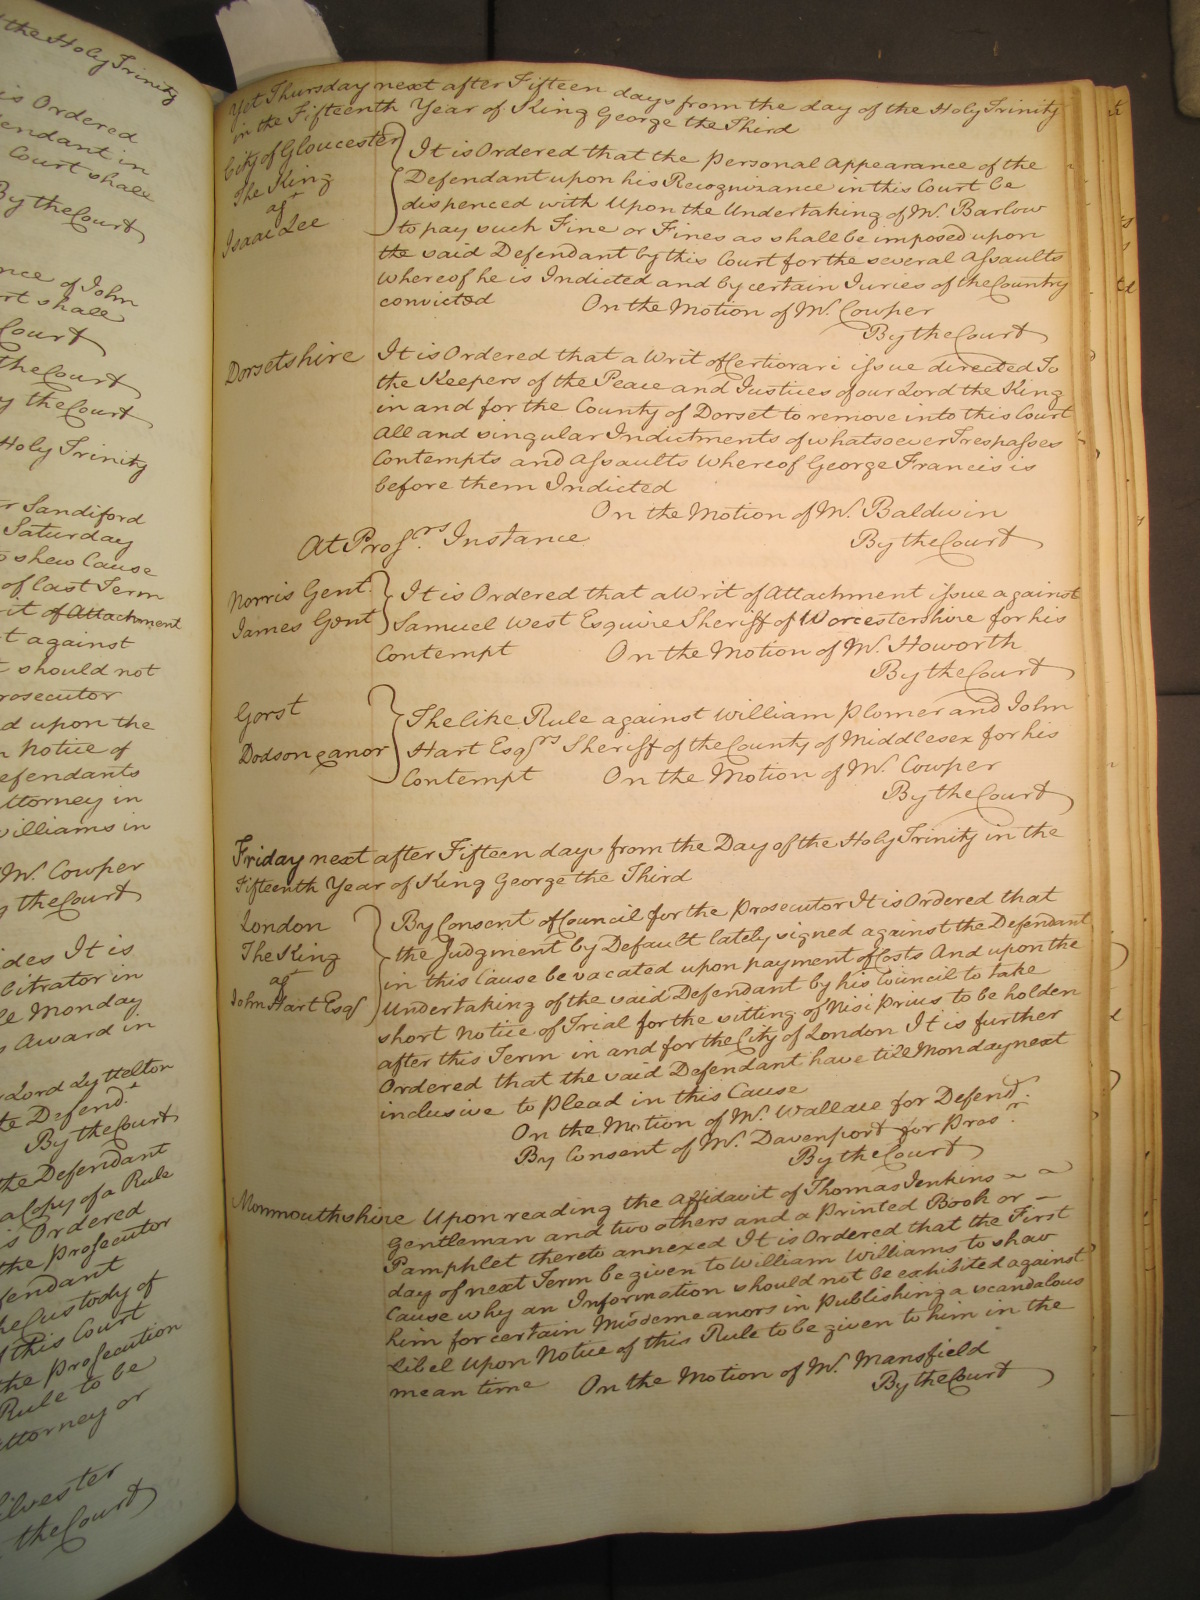 the Holy Trinity
is Ordered
endant in
Court shall
By the Court
nce of John
rt shall
Court
the Court
y the Court
Holy Trinity
r Sandiford
Saturday
to shew Cause
of last Term
rit of Attachment
t against
t should not
rosecutor
d upon the
n Notice of
efendants
ttorney in
williams in
Mr. Cowper
y the Court
ides It is
bitrator in
le Monday
s Award in
Lord Lyttelton
te Defendt.
By the Court
the Defendant
a Copy of a Rule
is Ordered
the Prosecutor
fendant
he Custody of
f this Court
the Prosecution
Rule to be
ttorney or
ilvester
the Court
Yet Thursday next after Fifteen days from the day of the Holy Trinity
in the Fifteenth Year of King George the Third
City of Gloucester
The King
agt
Isaac Lee
It is Ordered that the Personal Appearance of the
Defendant upon his Recognizance in this Court be
dispenced with Upon the Undertaking of Mr. Barlow
to pay such Fine or Fines as shall be imposed upon
the said Defendant by this Court for the several Assaults
whereof he is Indicted and by certain Juries of the Country
convicted On the Motion of Mr. Cowper
By the Court
Dorsetshire It is Ordered that a Writ of Certiorari issue directed To
the Keepers of the Peace and Justices of our Lord the King
in and for the County of Dorset to remove into this Court
All and singular Indictments of whatsoever Trespasses
Contempts and Assaults whereof George Francis is
before them Indicted
On the Motion of Mr. Baldwin
At Prosrs. Instance By the Court
Norris Gent.
James Gent
It is Ordered that a Writ of Attachment issue against
Samuel West Esquire Sheriff of Worcestershire for his
Contempt On the Motion of Mr. Howorth
By the Court
Gorst
Dodson & anor
The like Rule against William Plomer and John
Hart Esqrs Sheriff of the County of Middlesex for his
Contempt On the Motion of Mr. Cowper
By the Court
Friday next after Fifteen days from the Day of the Holy Trinity in the
Fifteenth Year of King George the Third
London
The King
agt
John Hart Esqr
By Consent of Council for the Prosecutor It is Ordered that
the Judgment by Default lately signed against the Defendant
in this Cause be vacated upon payment of Costs And upon the
Undertaking of the said Defendant by his Council to take
short Notice of Trial for the sitting of Nisi Prius to be holden
after this Term in and for the City of London It is further
Ordered that the said Defendant have till Monday next
inclusive to Plead in this Cause
On the Motion of Mr. Wallace for Defendt.
By Consent of Mr. Davenport for Prosr.
By the Court
Monmouthshire Upon reading the Affidavit of Thomas Jenkins
Gentleman and two others and a Printed Book or
Pamphlet thereto annexed It is Ordered that the First
day of next Term be given to William Williams to shew
Cause why an Information should not be exhibited against
him for certain Misdemeanors in publishing a scandalous
Libel Upon Notice of this Rule to be given to him in the
mean time On the Motion of Mr. Mansfield
By the Court